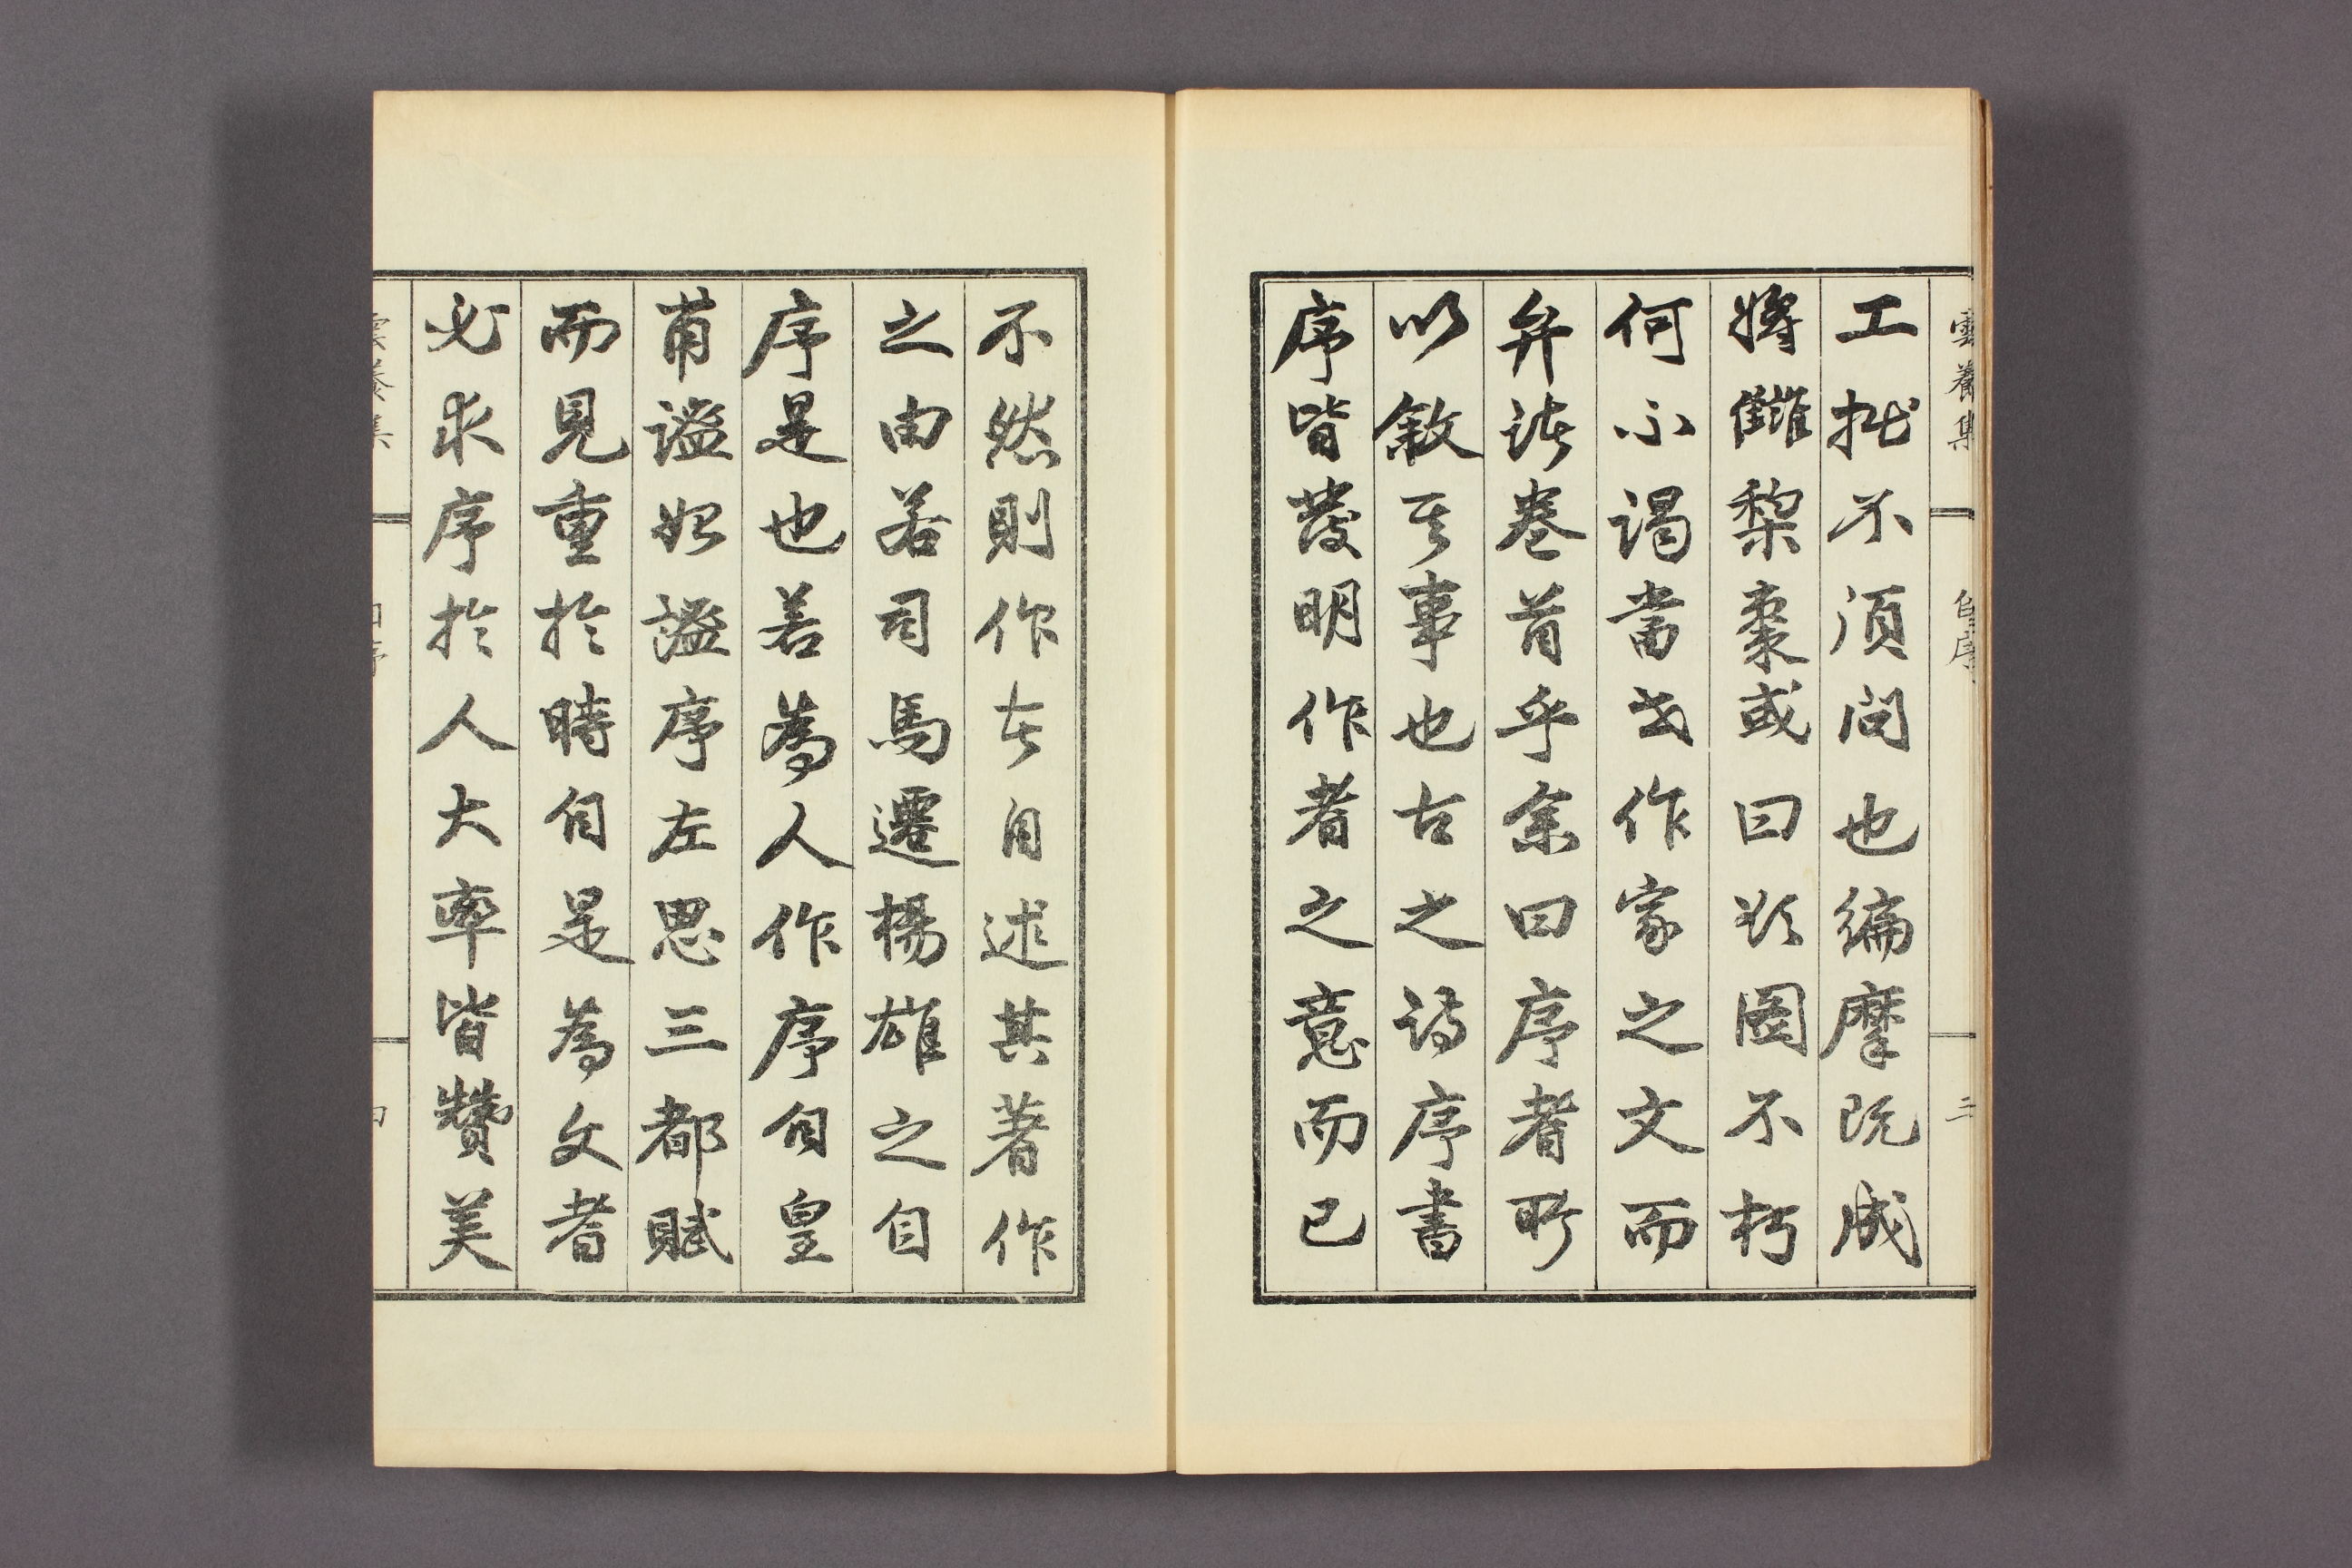 雲養集 自序 三
工拙不須問也編摩既成
將讎棃棗或曰欲圖不朽
何不謁當世作家之文而
弁諸卷首乎余曰序者所
以敘其事也古之詩序書
序皆發明作者之意而已
不然則作者自述其著作
之由若司馬遷楊雄之自
序是也若爲人作序自皇
甫謐始謐序左思三都賦
而見重於時自是爲文者
必求序於人大率皆贊美